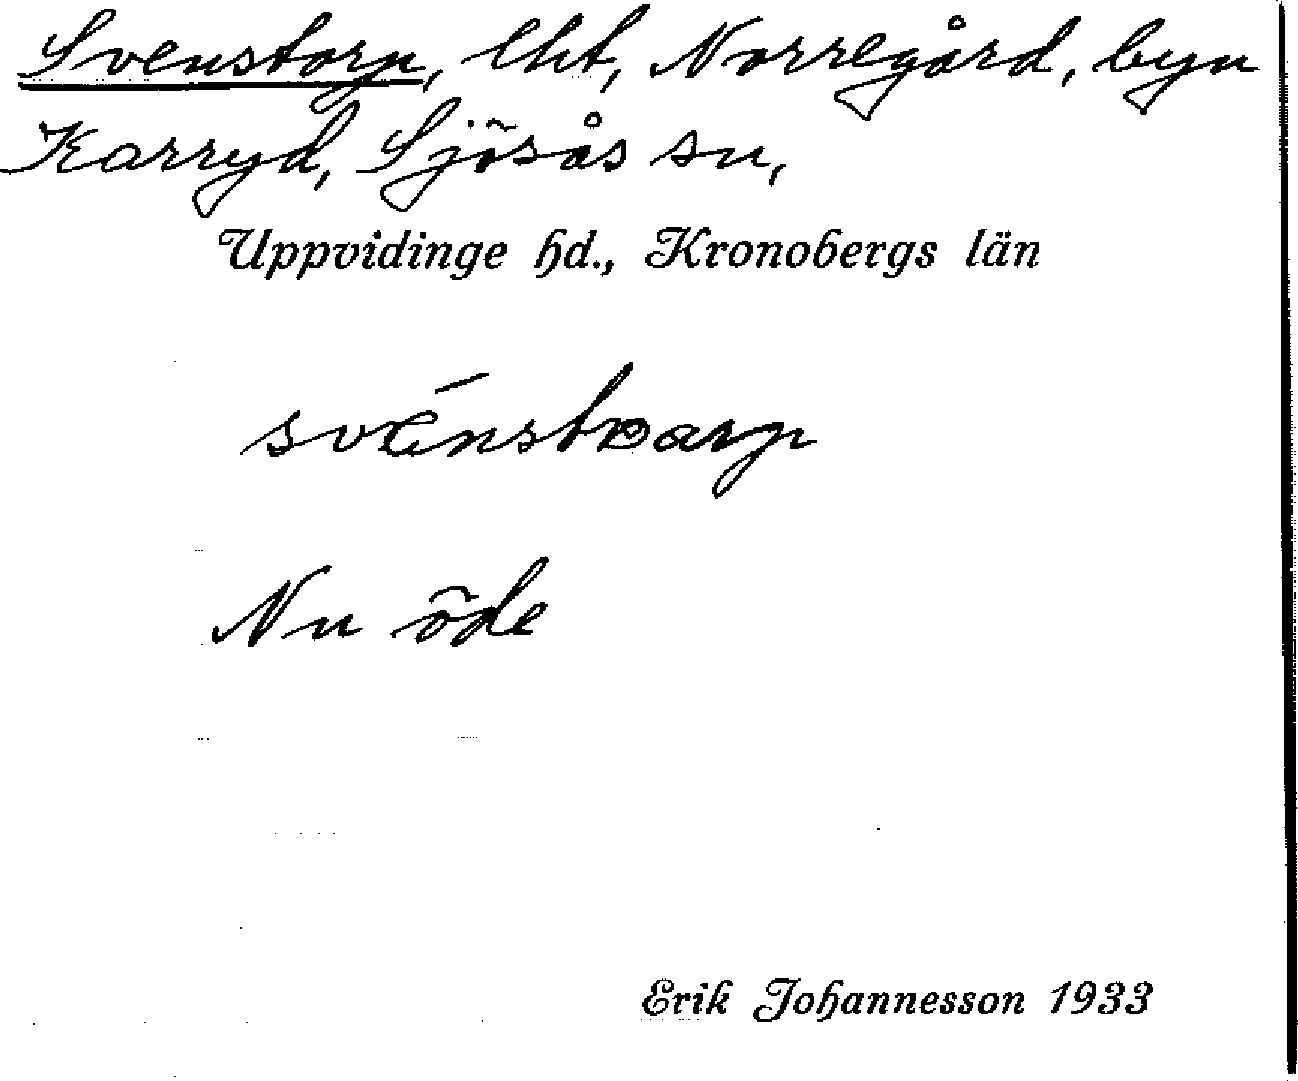 Svenstorp, lht, Norregård, byn
Karryd, Sjösås sn,
Uppvidinge hd., Kronobergs län
Nu öde
Erik Johannesson 1933